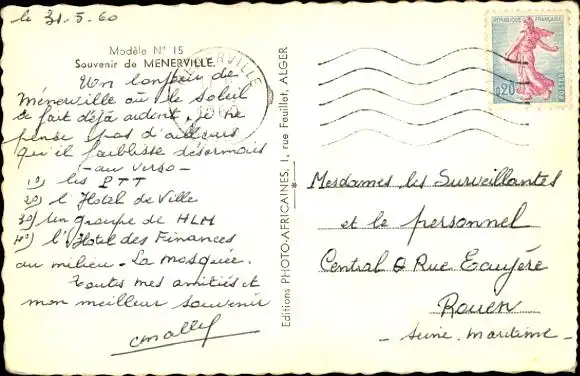 le 31.5.60
Modèle N° 15
Souvenir de MENERVILLE
Un bonjour de
Ménerville où le soleil
se fait déjà ardent, je ne
pense pas d'ailleurs
qu'il faiblisse désormais
- au verso -
1°) les PTT
2°) l'Hotel de Ville
3°) un groupe de HLM
4°) l'Hotel des Finances
au milieu - La mosquée.
Toutes mes amitiés et
mon meilleur souvenir
Editions PHOTO-AFRICAINES, 1, rue Feuillet, ALGER
MENERVILLE
1960
REPUBLIQUE FRANÇAISE
0,20
POSTES
Mesdames les Surveillantes
et le personnel
Central Rue Ecuyère
Rouen
- Seine. Maritime -